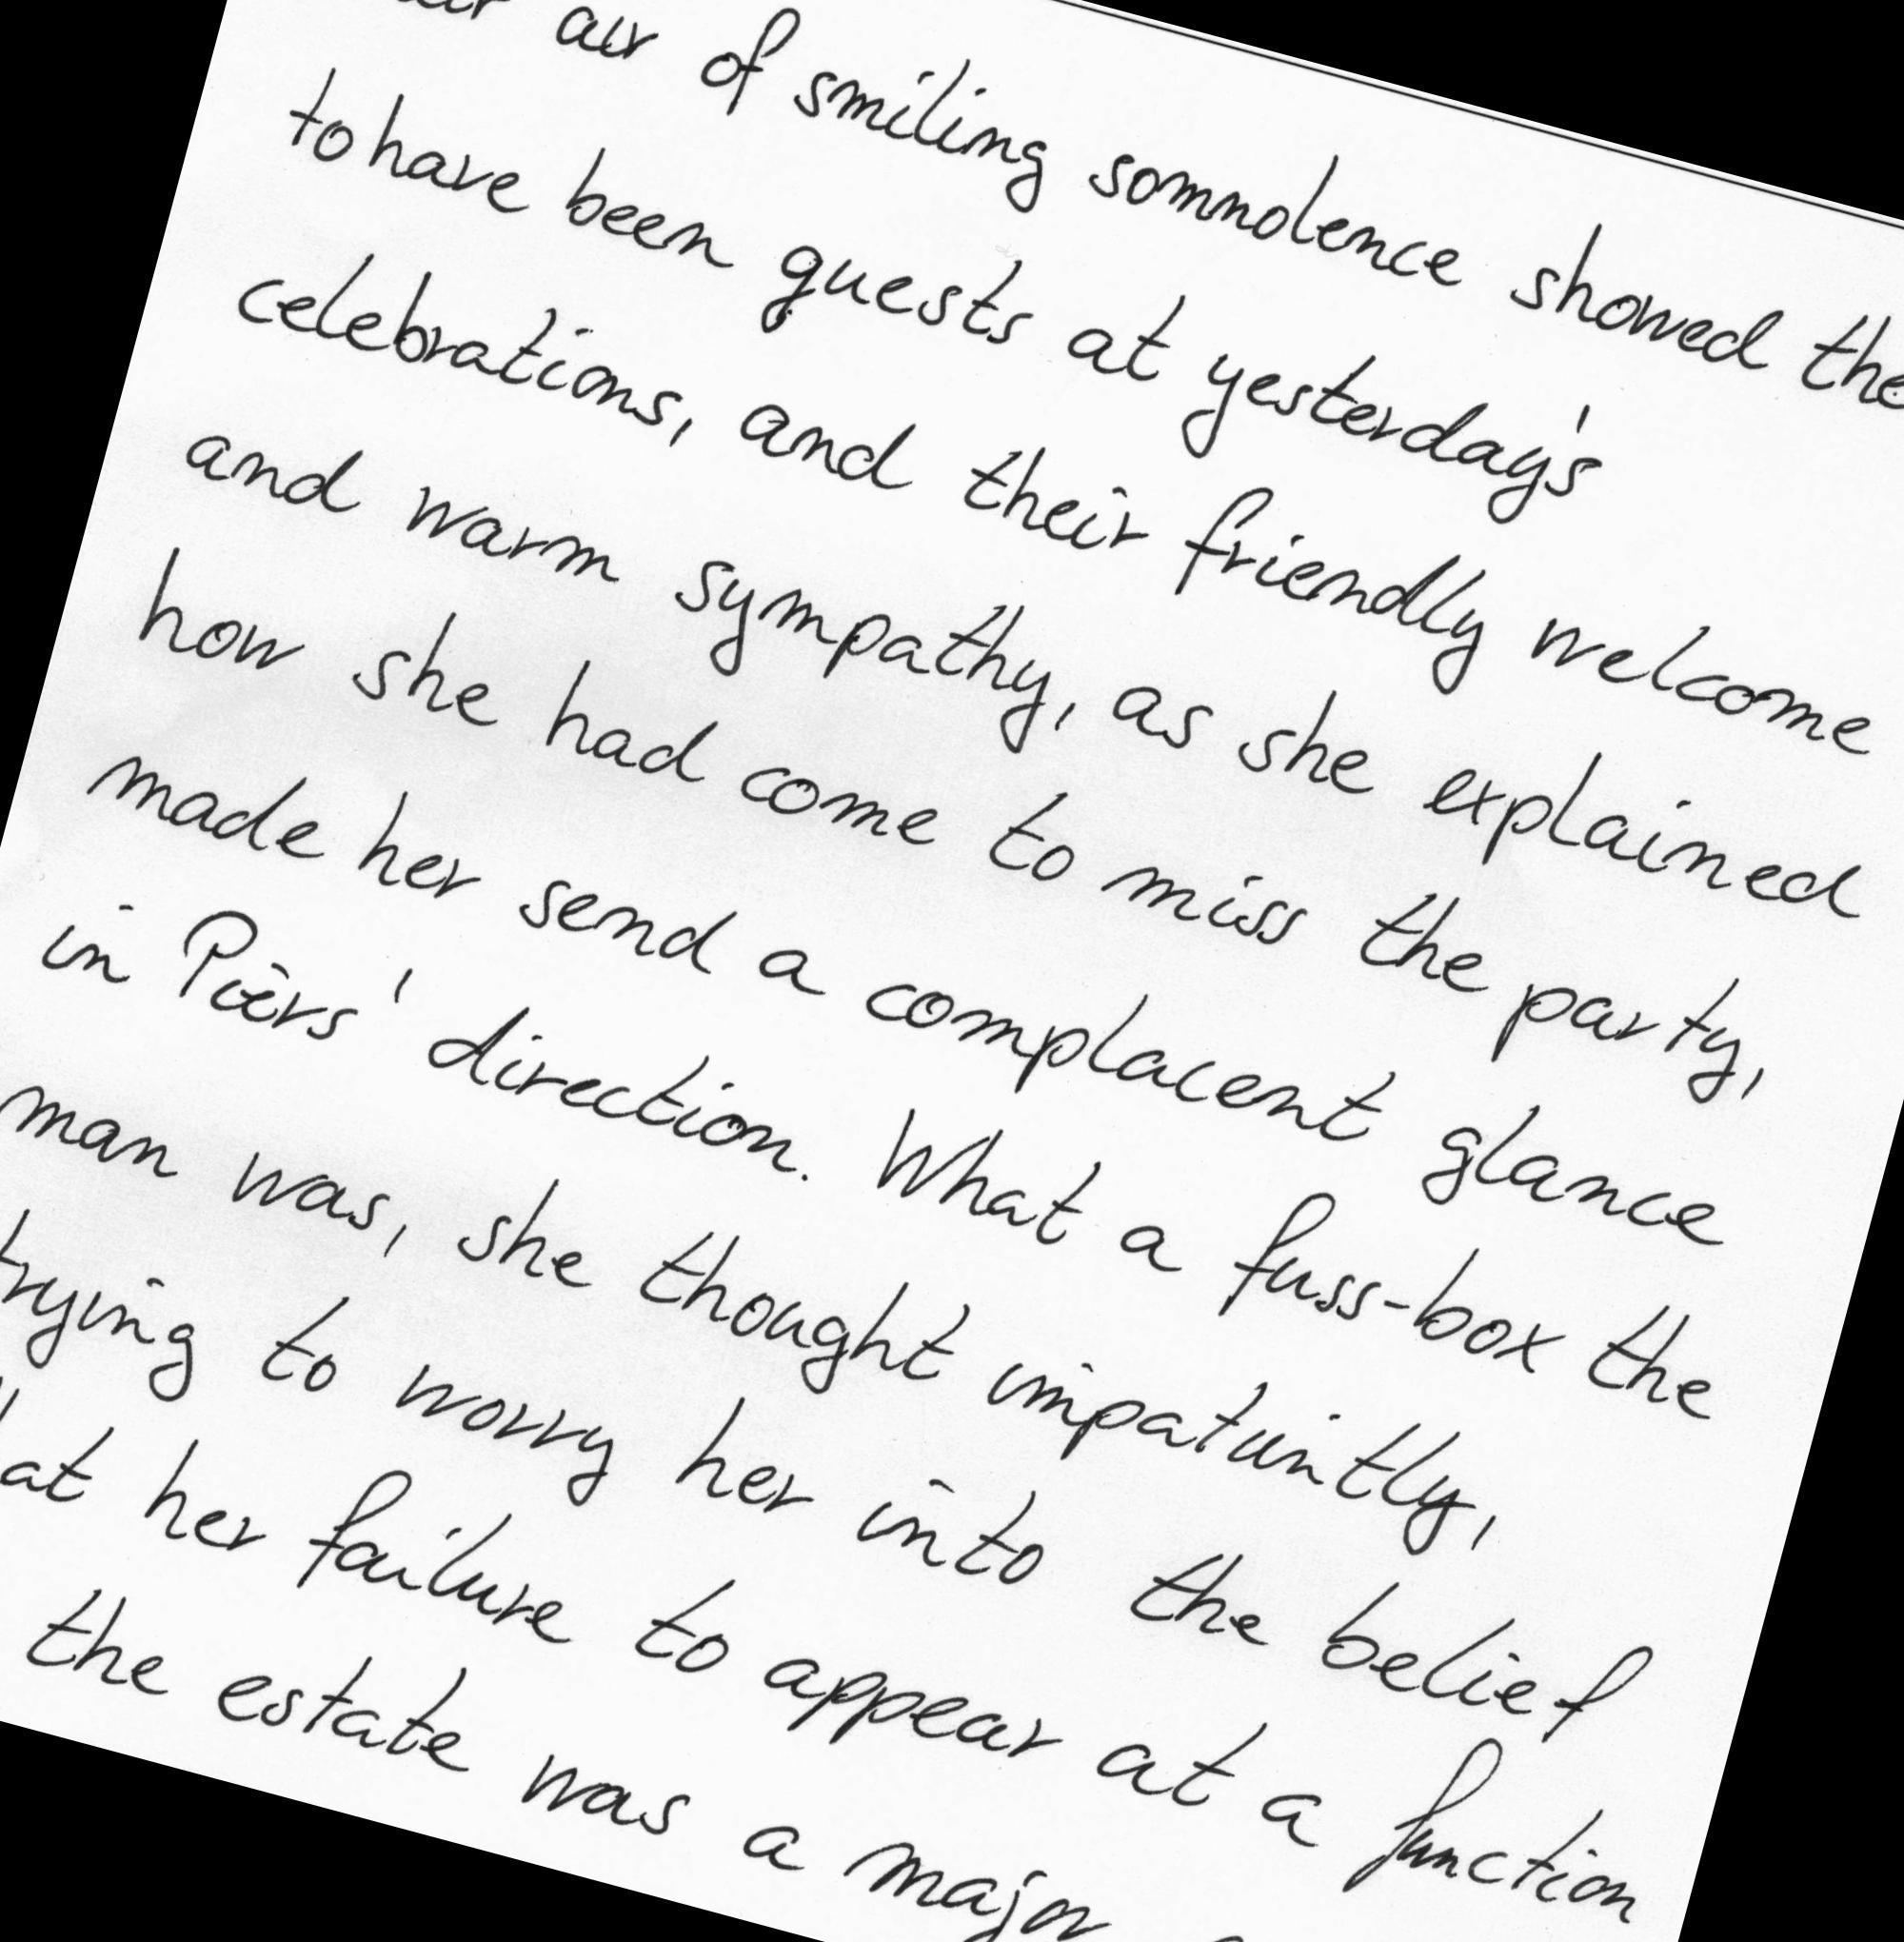 air of smiling somnolence showed
to have been guests at yesterday's
celebrations, and their friendly welcome
and warm sympathy, as she explained
how she had come to miss the party,
made her send a complacent glance
in Piers' direction. What a fuss-box the
man was, she thought impatiently,
trying to worry her into the belief
her failure to appear at a function
the estate was a major